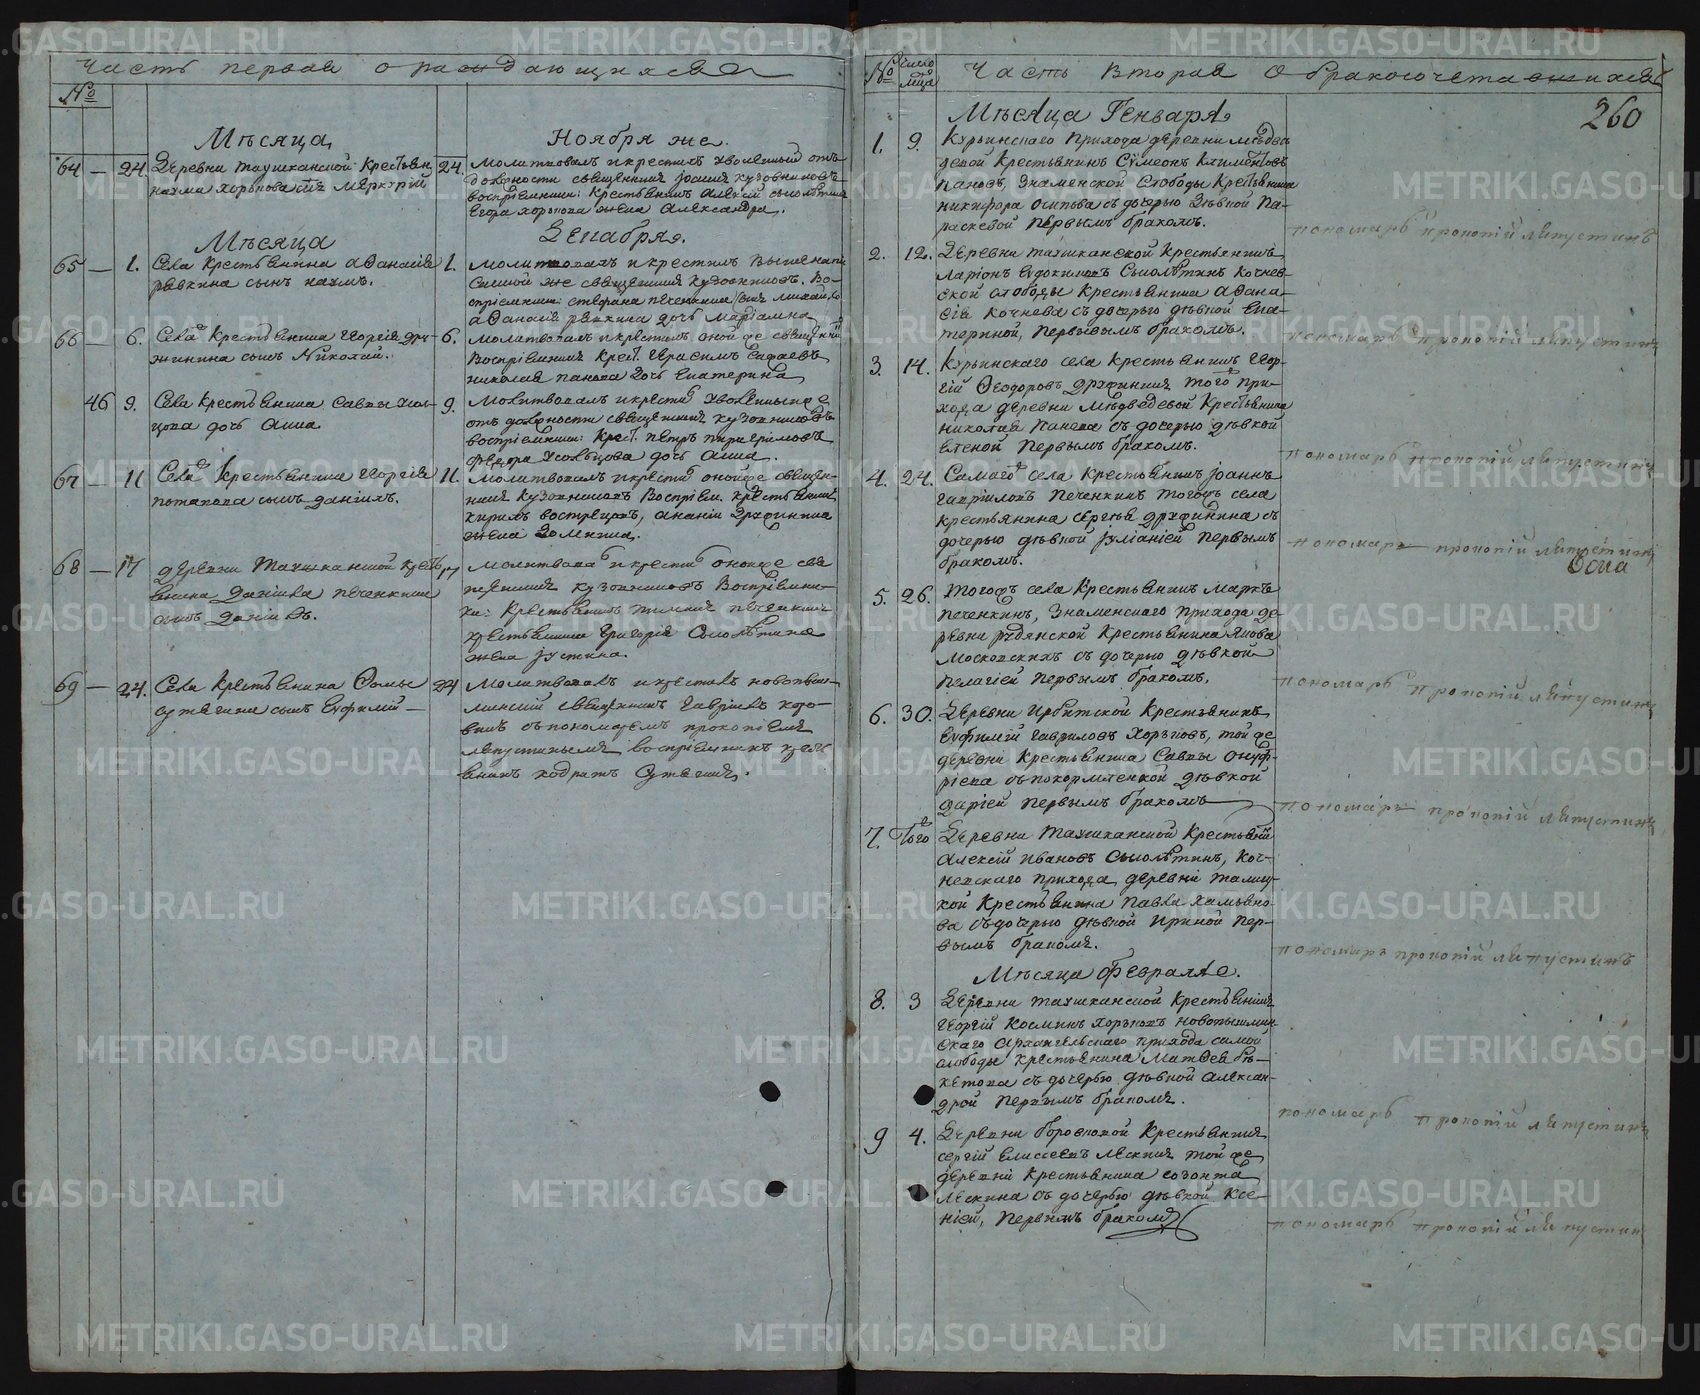 Часть первая о раждающихся
№
Мѣсяца Ноября же.
64 — 24. Деревни Таушканской Крестьян.
наума хорькова сынъ Меркурій
24. Молитвовалъ и крестилъ уволенный отъ
должности священникъ Іоаннъ кузовниковъ
воспріемники: Крестьянинъ Алексій
Егора хорькова жена Александра.
Мѣсяца Декабря.
65 — 1. Села Крестьянина Аѳанасія
рявкина сынъ наумъ.
1. Молитвовалъ и крестилъ
же священникъ Кузовниковъ. Во-
спріемники: стефана печенкина сынъ
аѳанасія рявкина дочь Маріамна
66 — 6. Села Крестьянина Георгія дру-
жинина сынъ Николай.
6. Молитвовалъ и крестилъ оной же священникъ
Воспріемники Крест. Герасимъ
николая панова дочь Екатерина
46 9. Села Крестьянина Саввы
дочь Анна
9. Молитвовалъ и крестилъ уволенный
отъ должности священникъ кузовниковъ
воспріемники: Крест. петръ
федора дочь Анна.
67 — 11 Села Крестьянина Георгія
потапова сынъ даніилъ.
11. Молитвовалъ и крестилъ оной же священ-
никъ Кузовниковъ Воспріем. Крестьянинъ
кирилъ вострецовъ, ананіи дружинина
жена
68 — 17 деревни Таушканской Кресть
янина Даніила печенкина
сынъ Даніилъ.
17 молитвовалъ и крестилъ оной же свя
щенникъ кузовниковъ Воспріемни-
ки: Крестьянинъ печенкинъ
крестьянина григорія
жена Іустина.
69 — 24. Села Крестьянина Ѳомы
сутягина сынъ Евфимій —
24 Молитвовалъ и крестилъ новопыш-
минскій священникъ Гавріилъ
съ пономаремъ прокопіемъ
ляпустинымъ воспріемникъ кресть
янинъ кодратъ Сутягинъ.
№ Число мѣсяца Часть вторая О бракосочетавшихся
260
Мѣсяца Генваря
1. 9. Курьинскаго прихода деревни мѣдве
девой Крестьянинъ Сѵмеонъ Климентовъ
пановъ, Знаменской Слободы Крестьянина
никифора осипова съ дочерью дѣвкой Па-
раскевой первымъ бракомъ.
пономарь прокопій ляпустинъ
2. 12. Деревни таушканской Крестьянинъ
ларіонъ Евдокимовъ Сысолѣтинъ Кочнев-
ской слободы Крестьянина аѳана-
сія Кочнева съ дочерью дѣвкой Ека-
териной, первымъ бракомъ.
пономарь прокопій ляпустинъ
3. 14. Курьинскаго села Крестьянинъ Геор-
гій Ѳеодоровъ дружининъ того же при-
хода деревни Мѣдведевой Крестьянина
николая Панова съ дочерью дѣвкой
Еленой первымъ бракомъ.
пономарь прокопій ляпустинъ
4. 24. Самаго села Крестьянинъ Іоаннъ
гавриловъ печенкинъ тогожъ села
крестьянина сергѣя дружинина съ
дочерью дѣвкой Іуліаніей первымъ
бракомъ.
пономарь прокопій ляпустинъ
5. 26. Тогожъ села Крестьянинъ Маркъ
печенкинъ, Знаменскаго прихода де-
ревни рудянской Крестьянина Якова
Московскихъ съ дочерью дѣвкой
Пелагіей первымъ бракомъ.
пономарь прокопій ляпустинъ
6. 30. Деревни Ирбитской Крестьянинъ
Евфимій гавриловъ Хорьковъ, той же
деревни Крестьянина Саввы онуф-
ріева съ вскормленкой дѣвкой
даріей первымъ бракомъ
пономарь прокопій ляпустинъ
7. Того Деревни Таушканской Крестьянинъ
Алексій Ивановъ Сысолѣтинъ, Коч-
невскаго прихода, деревни талиц-
кой Крестьянина павла
съ дочерью дѣвкой Ириной пер-
вымъ бракомъ.
пономарь прокопій ляпустинъ
Мѣсяца Февраля.
8. 3 Деревни таушканской Крестьянинъ
георгій Косминъ хорьковъ новопышмин-
скаго Архангельскаго прихода самой
слободы крестьянина Матѳея бѣ-
кетова съ дочерью дѣвкой алексан-
дрой первымъ бракомъ.
пономарь прокопій ляпустинъ
9 4. Деревни боровковой Крестьянинъ
сергій Елисеевъ лескинъ той же
деревни Крестьянина созонта
лескина съ дочерью дѣвкой Ксе-
ніей, первымъ бракомъ
пономарь прокопій ляпустинъ
METRIKI.GASO-URAL.RU